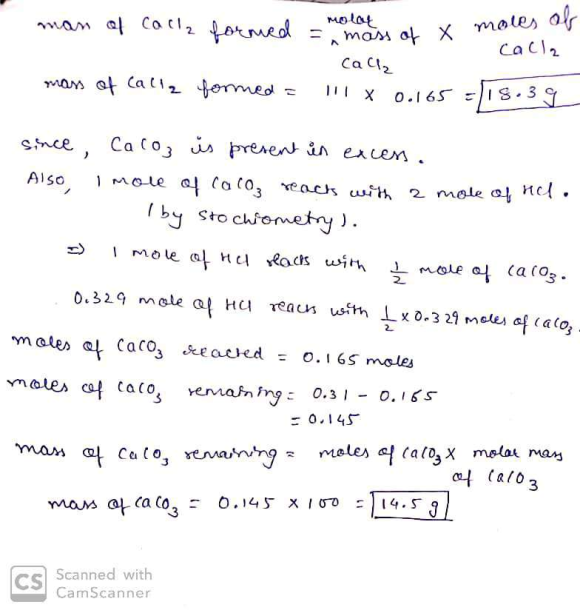 mass of CaCl2 formed = molar mass of CaCl2 X moles of CaCl2
mass of CaCl2 formed = 111 X 0.165 = 18.3 g
since, CaCO3 is present in excess.
Also, 1 mole of CaCO3 reacts with 2 mole of HCl.
(by stochiometry).
⇒ 1 mole of HCl reacts with 1/2 mole of CaCO3.
0.329 mole of HCl reacts with 1/2 x 0.329 moles of CaCO3.
moles of CaCO3 reacted = 0.165 moles
moles of CaCO3 remaining = 0.31 - 0.165
= 0.145
mass of CaCO3 remaining = moles of CaCO3 X molar mass of CaCO3
mass of CaCO3 = 0.145 X 100 = 14.5 g
CS Scanned with
CamScanner